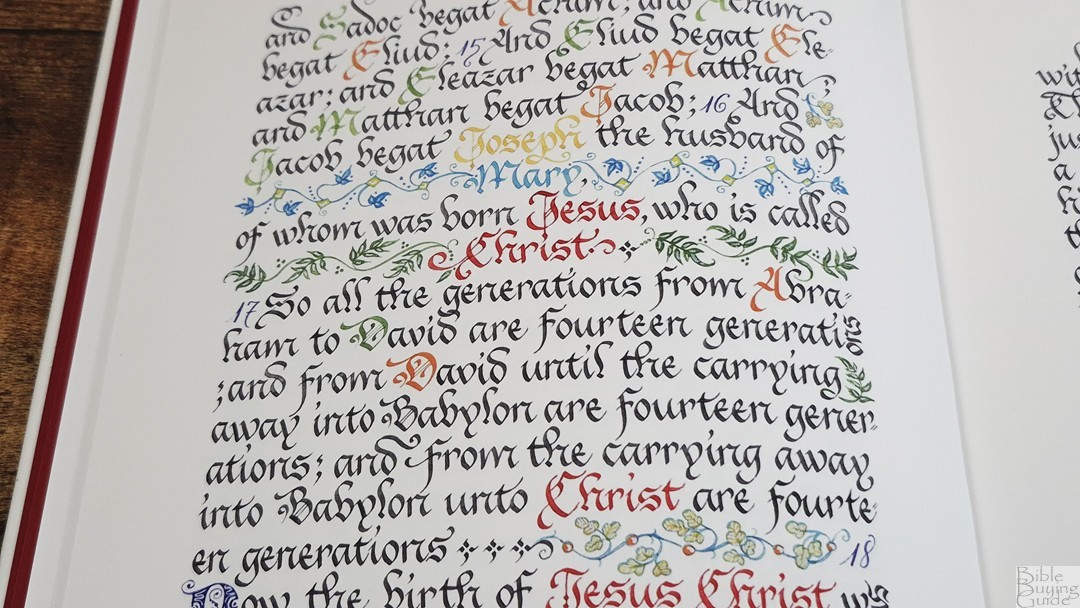 and Sadoc begat Achim; and Achim
begat Eliud; 15 And Eliud begat Ele-
azar; and Eleazar begat Matthan;
and Matthan begat Jacob; 16 And
Jacob begat Joseph the husband of
Mary,
of whom was born Jesus, who is called
Christ.
17 So all the generations from Abra-
ham to David are fourteen generations
; and from David until the carrying
away into Babylon are fourteen gener-
ations; and from the carrying away
into Babylon unto Christ are fourte-
en generations 18
Now the birth of Jesus Christ was
wit
ju
a
Bible
Buying
Guide